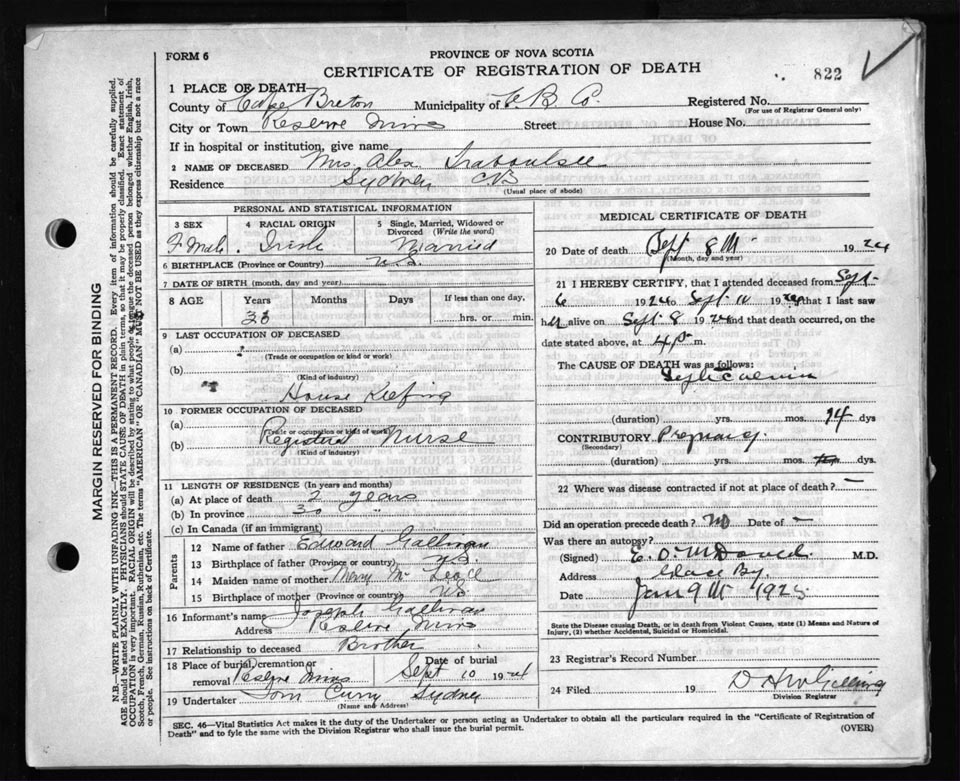 FORM 6
PROVINCE OF NOVA SCOTIA
CERTIFICATE OF REGISTRATION OF DEATH
822
1 PLACE OF DEATH
County of Cape Breton Municipality of C B Co. Registered No.
(For use of Registrar General only)
City or Town Reserve Mines Street House No.
If in hospital or institution, give name
2 NAME OF DECEASED Mrs. Alex Traboulsee
Residence Sydney CB
(Usual place of abode)
PERSONAL AND STATISTICAL INFORMATION
3 SEX F Male.
4 RACIAL ORIGIN Irish
5 Single, Married, Widowed or Divorced (Write the word) Married
6 BIRTHPLACE (Province or Country) N.S.
7 DATE OF BIRTH (month, day and year)
8 AGE Years Months Days If less than one day,
hrs. or min.
9 LAST OCCUPATION OF DECEASED
(a)
(Trade or occupation or kind or work)
(b)
(Kind of industry)
House Keeping
10 FORMER OCCUPATION OF DECEASED
(a)
(Trade or occupation or kind or work)
(b) Registered Nurse
(Kind of industry)
11 LENGTH OF RESIDENCE (In years and months)
(a) At place of death 2 years
(b) In province 30 "
(c) In Canada (if an immigrant)
Parents
12 Name of father Edward Gallivan
13 Birthplace of father (Province or country) N.S.
14 Maiden name of mother Mary Mc
15 Birthplace of mother (Province or country) N.S.
16 Informant's name Joseph Gallivan
Address Reserve Mines
17 Relationship to deceased Brother
18 Place of burial, cremation or removal Reserve Mines Date of burial Sept 10 1924
19 Undertaker Tom Curry Sydney
(Name and Address)
MEDICAL CERTIFICATE OF DEATH
20 Date of death Sept 8th 1924
(Month, day and year)
21 I HEREBY CERTIFY, that I attended deceased from Sept
6 1924 to Sept 10 1924 that I last saw
her alive on Sept 8 1924 and that death occurred, on the
date stated above, at 4 p m.
The CAUSE OF DEATH was as follows:
Septicaemia
(duration) yrs. mos. 14 dys
CONTRIBUTORY Pregnancy
(Secondary)
(duration) yrs. mos. dys.
22 Where was disease contracted if not at place of death? —
Did an operation precede death? No Date of —
Was there an autopsy?
(Signed) E. O. McDonald M.D.
Address Glace Bay
Date Jan 9th 1925
State the Disease causing Death, or in death from Violent Causes, state (1) Means and Nature of Injury, (2) whether Accidental, Suicidal or Homicidal.
23 Registrar's Record Number
24 Filed 19
Division Registrar
SEC. 46—Vital Statistics Act makes it the duty of the Undertaker or person acting as Undertaker to obtain all the particulars required in the "Certificate of Registration of
Death" and to fyle the same with the Division Registrar who shall issue the burial permit. (OVER)
MARGIN RESERVED FOR BINDING
N.B.—WRITE PLAINLY WITH UNFADING INK—THIS IS A PERMANENT RECORD. Every item of information should be carefully supplied.
AGE should be stated EXACTLY. PHYSICIANS should STATE CAUSE OF DEATH in plain terms, so that it may be properly classified. Exact statement of
OCCUPATION is very important. RACIAL ORIGIN will be described by stating to what people the deceased person belonged whether English, Irish,
Scotch, French, German, Russian, Ruthenian, etc. The terms "AMERICAN" OR "CANADIAN" MUST NOT BE USED as they express citizenship but not a race
or people. See instructions on back of Certificate.